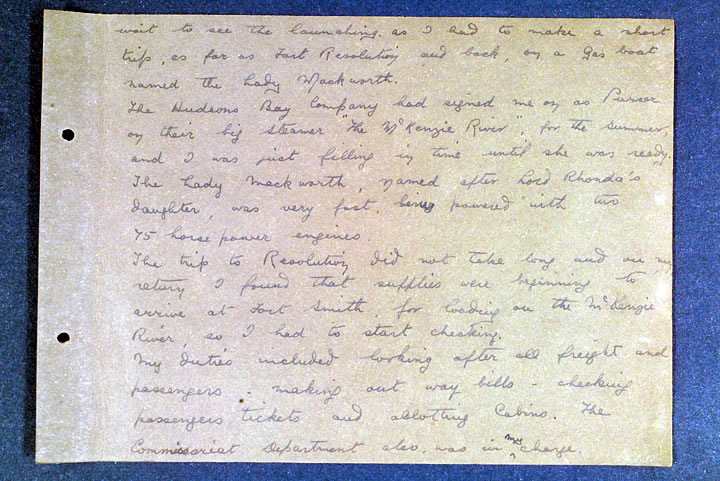 wait to see the launching. as I had to make a short
trip, as far as Fort Resolution and back, on a Gas boat
named the Lady Mackworth.
The Hudsons Bay Company had signed me on as Purser
on their big steamer "The McKenzie River", for the summer,
and I was just filling in time until she was ready.
The Lady Mackworth, named after Lord Rhonda's
daughter, was very fast, being powered with two
75 horse power engines.
The trip to Resolution did not take long and on my
return I found that supplies were beginning to
arrive at Fort Smith, for loading on the McKenzie
River, so I had to start checking.
My duties included looking after all freight and
passengers - making out way bills - checking
passengers tickets and allotting Cabins. The
Commissariat Department also, was in my charge.